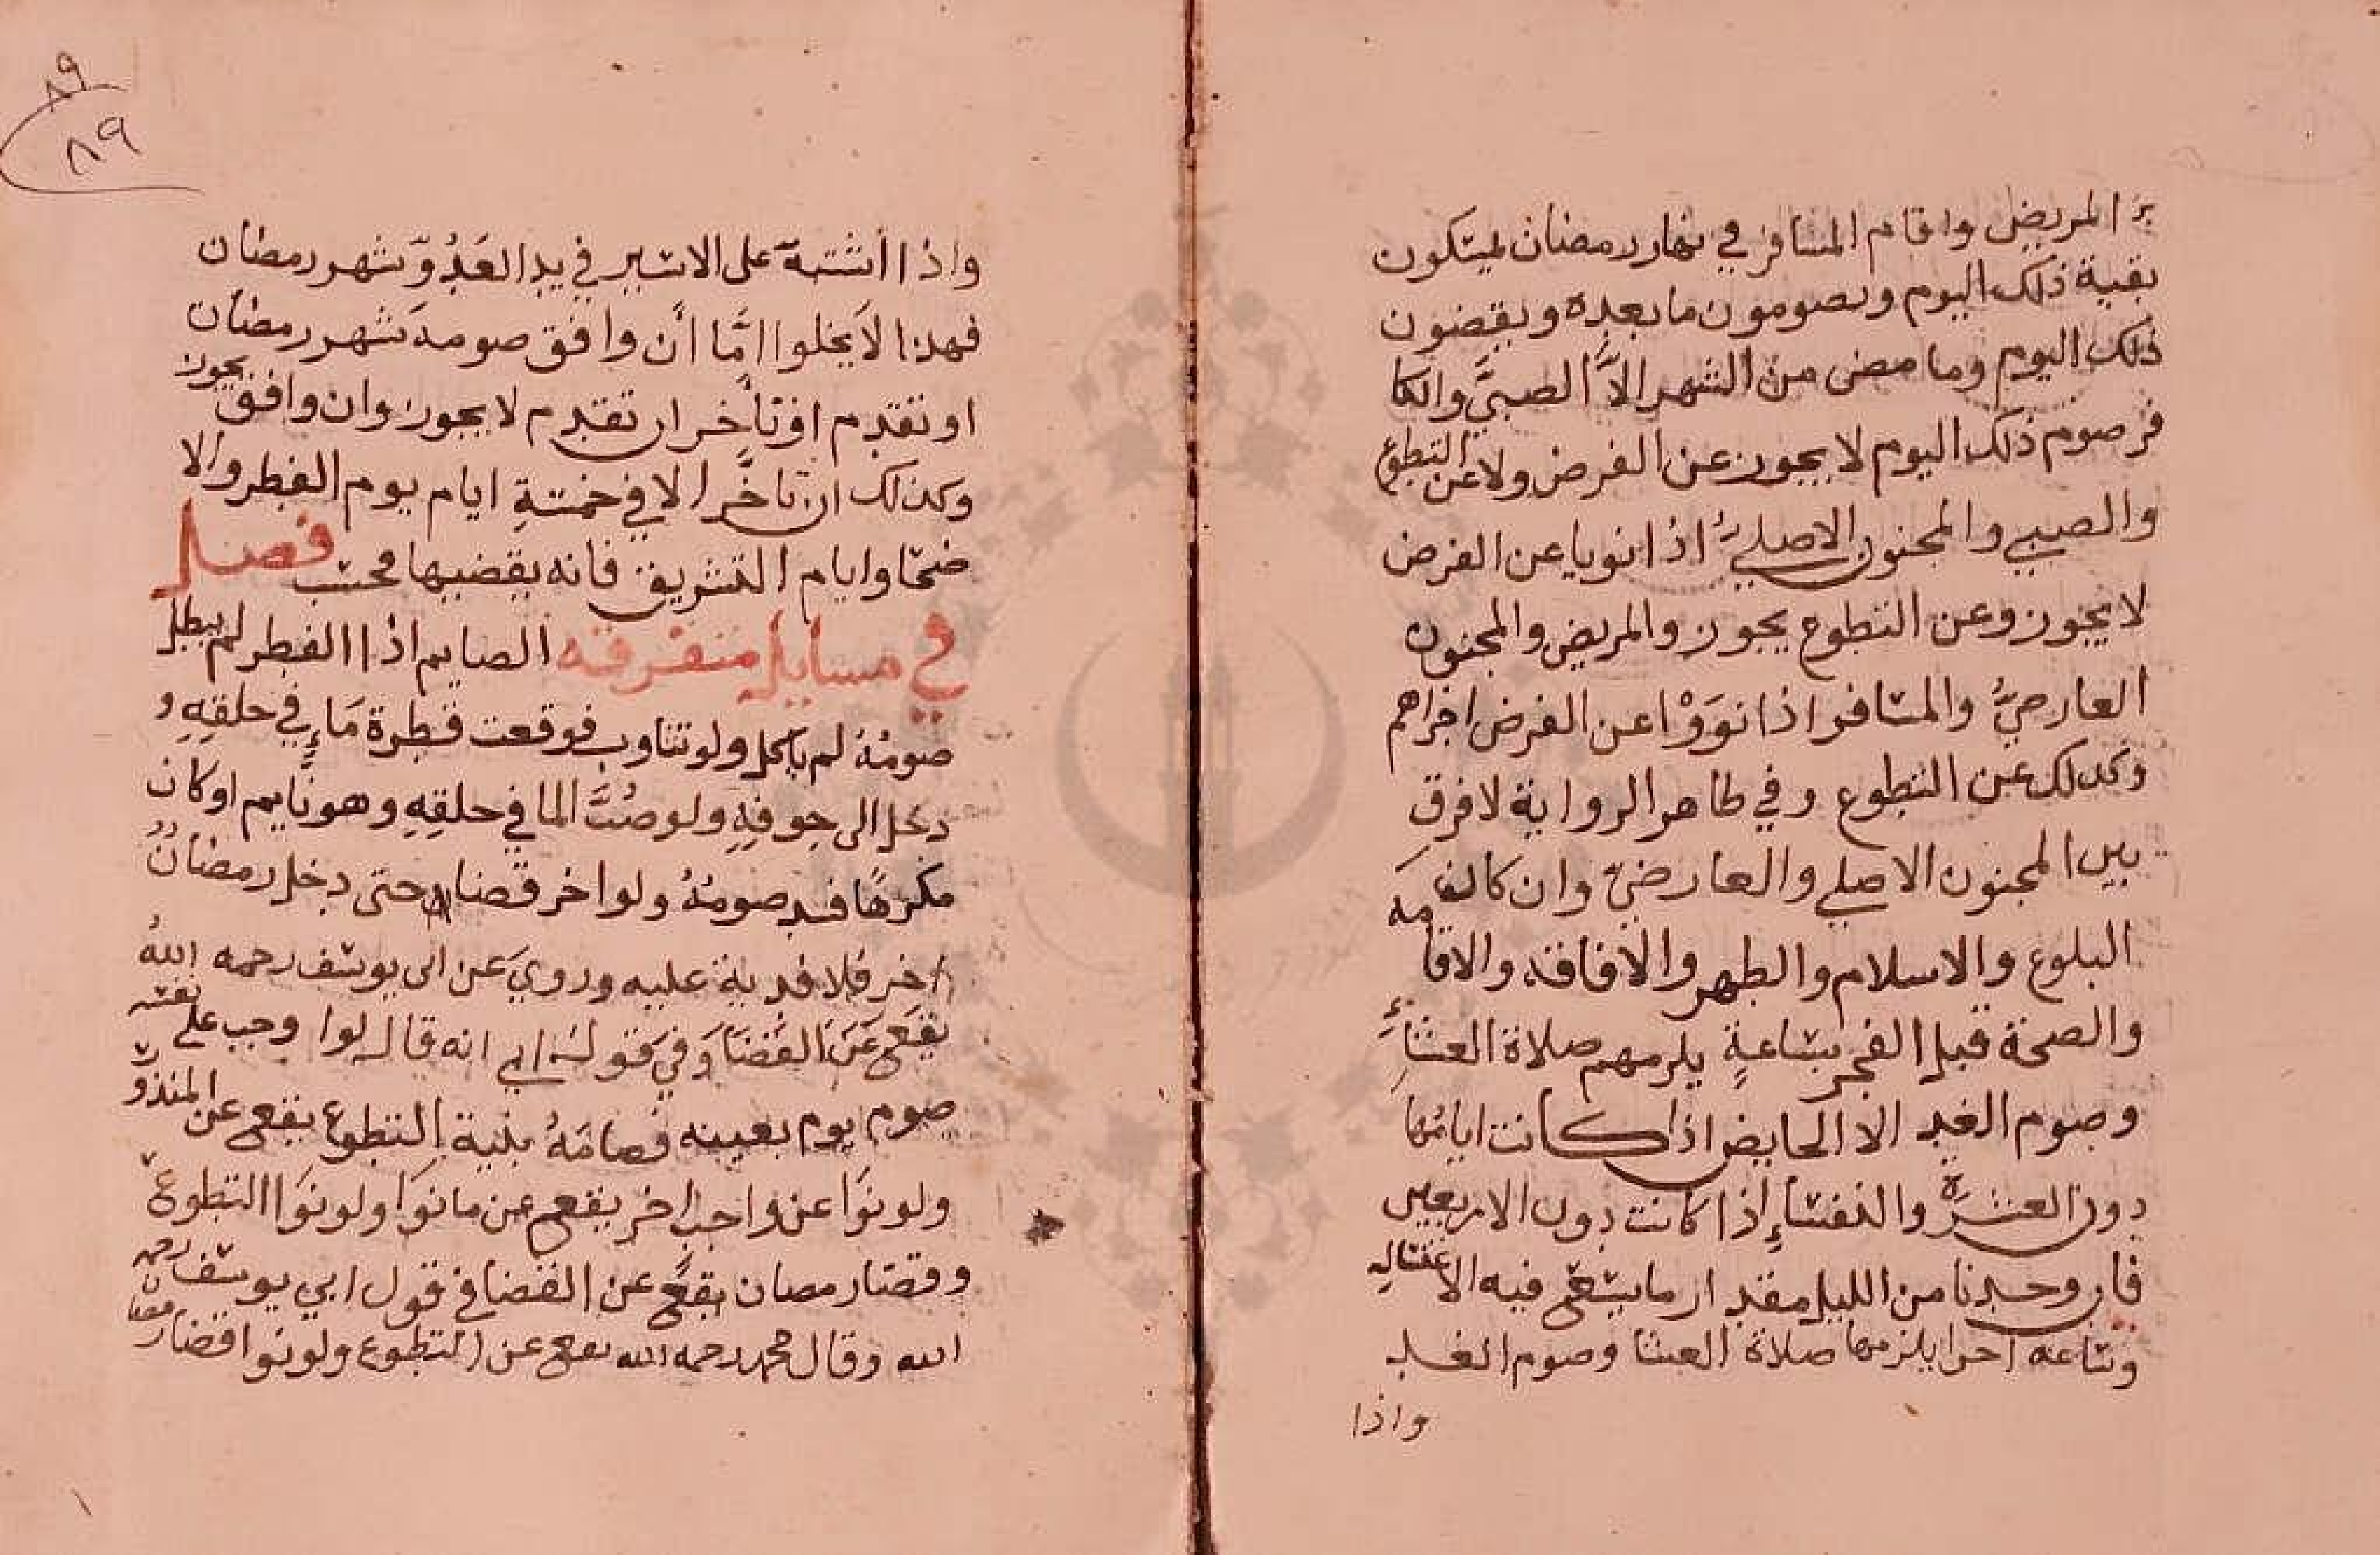 برا المريض واقام المسافر في نهار رمضان ليمسكون
بقية ذلك اليوم ويصومون ما بعده ويقضون
ذلك اليوم وما مضى من الشهر الا الصبي والكا
فر صوم ذلك اليوم لا يجوز عن الفرض ولا عن التطوع
والصبي والمجنون الاصلي اذا نويا عن الفرض
لا يجوز وعن التطوع يجوز والمريض والمجنون
العارضيُّ والمسافر اذا نوَوْا عن الفرض اجزاهم
وكذلك عن التطوع وفي ظاهر الرواية لا فرق
بين المجنون الاصلي والعارضي وان كان
البلوغ والاسلام والطهر والافاقة والاقامة
والصحة قبل الفجر بساعةٍ يلزمهم صلاة العشاءِ
وصوم الغد الا الحايض اذا كانت ايامُها
دون العشرة والنفساءِ اذا كانت دون الاربعين
فان وجدنا من الليل مقدار ما يسع فيه الاغتسال
وساعه اخرا يلزمها صلاة العشا وصوم الغد
واذا
٨٩
٨٩
واذا اشتبهَ على الاسير في يد العَدُوّ شهر رمضان
فهذا لا يخلوا امَّا أن وافق صومه شهر رمضان
او تقدم او تأخر ان تقدم لا يجوز وان وافق يجوز
وكذلك ان تاخَّر الا في خمسةِ ايام يوم الفطر والا
ضحا وايام التشريق فانه يقضيها فحسب فصل
في مسايل متفرقه الصايم اذا الفطر لم يبطل
صومُهُ لم ياكل ولو تثاوب فوقعت قطرة مَاءٍ في حلقِهِ و
دخل الى جوفِهِ ولو صُبَّ الما في حلقِهِ وهو نايم او كان
مكرهًا فسد صومُهُ ولو اخر قضاه حتى دخل رمضانٌ
اخر فلا فدية عليه وروي عن ابي يوسف رحمه اللهُ
يقع عَن القضَا وَفي قوله ابي انه قال لوا وجب على نفسه
صوم يوم بعينه فصامَهُ بنية التطوع يقع عن المنذور
ولو نوَا عن واجب اخر يقع عن ما نوَا ولو نوَا التطوع
وقضا رمصان يقع عن القضا في قول ابي يوسف رحمه
الله وقال محمد رحمه الله يقع عن التطوع ولو نوا قضا رمضان